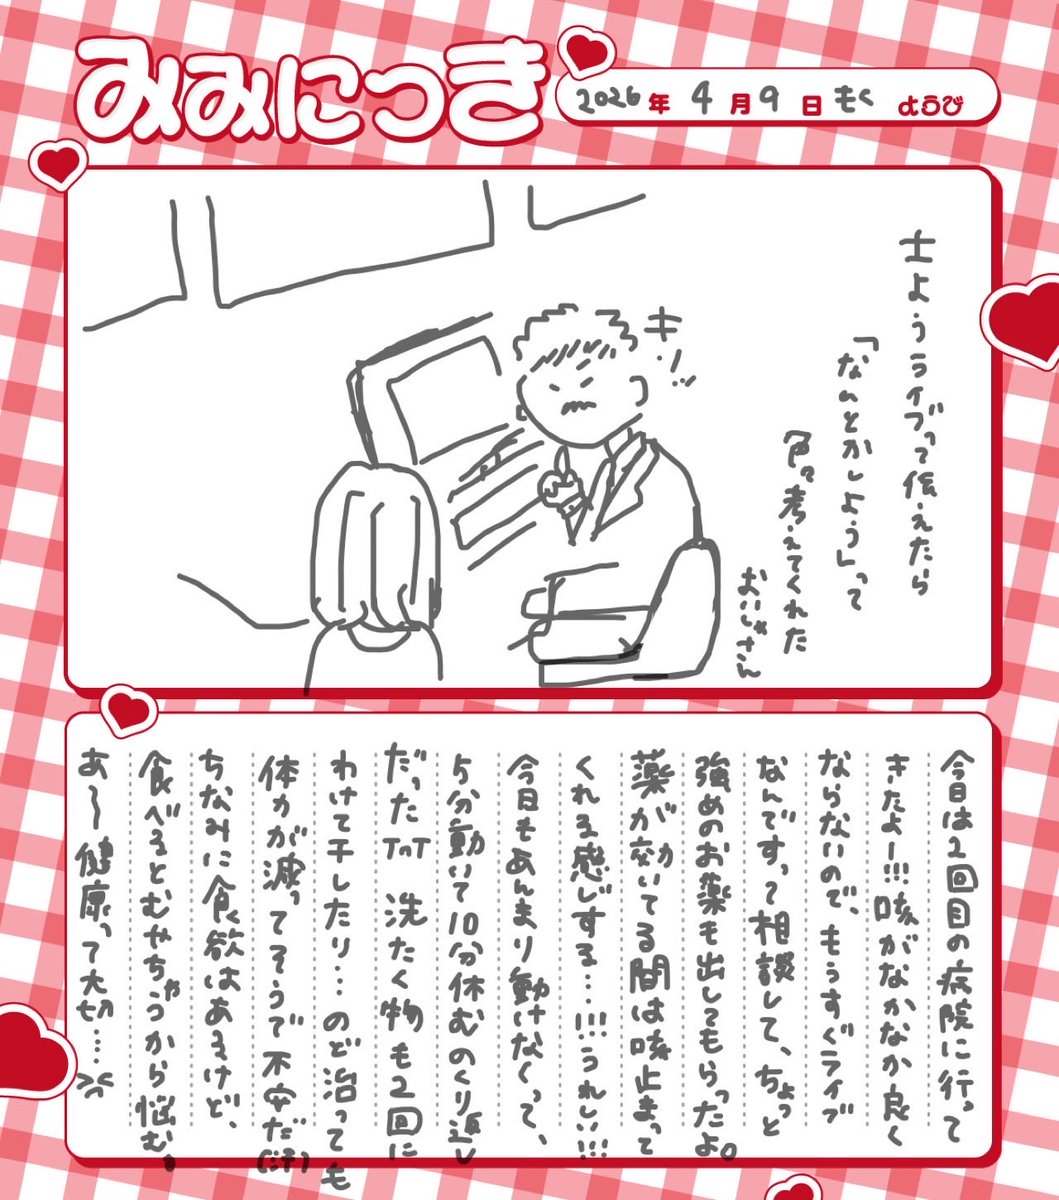 みみにっき
2026年 4月9日 もくようび
土ようライブって伝えたら
「なんとかしよう」って
色々考えてくれた
おいしゃさん
キリッ
今日は2回目の病院に行って
きたよー!!!咳がなかなか良く
ならないので、もうすぐライブ
なんですって相談して、ちょっと
強めのお薬も出してもらったよ。
薬が効いてる間は咳止まって
くれる感じする…!!!うれしい!!!
今日もあんまり動けなくって、
5分動いて10分休むのくり返し
だったTnT 洗たく物も2回に
わけて干したり…のど治っても
体力が減ってそうで不安だ(汗)
ちなみに食欲はあるけど、
食べるとむせちゃうから悩む。
あ〜健康って大切……><